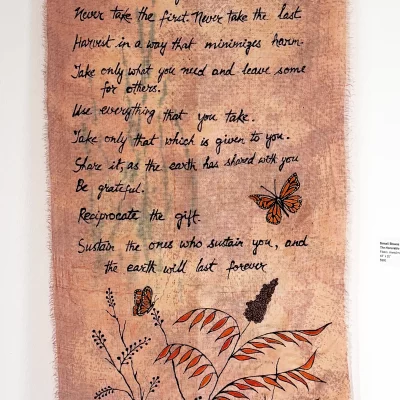 Never take the first. Never take the last
Harvest in a way that minimizes harm.
Take only what you need and leave some
for others.
Use everything that you take.
Take only that which is given to you.
Share it, as the earth has shared with you
Be grateful.
Reciprocate the gift.
Sustain the ones who sustain you, and
the earth will last forever